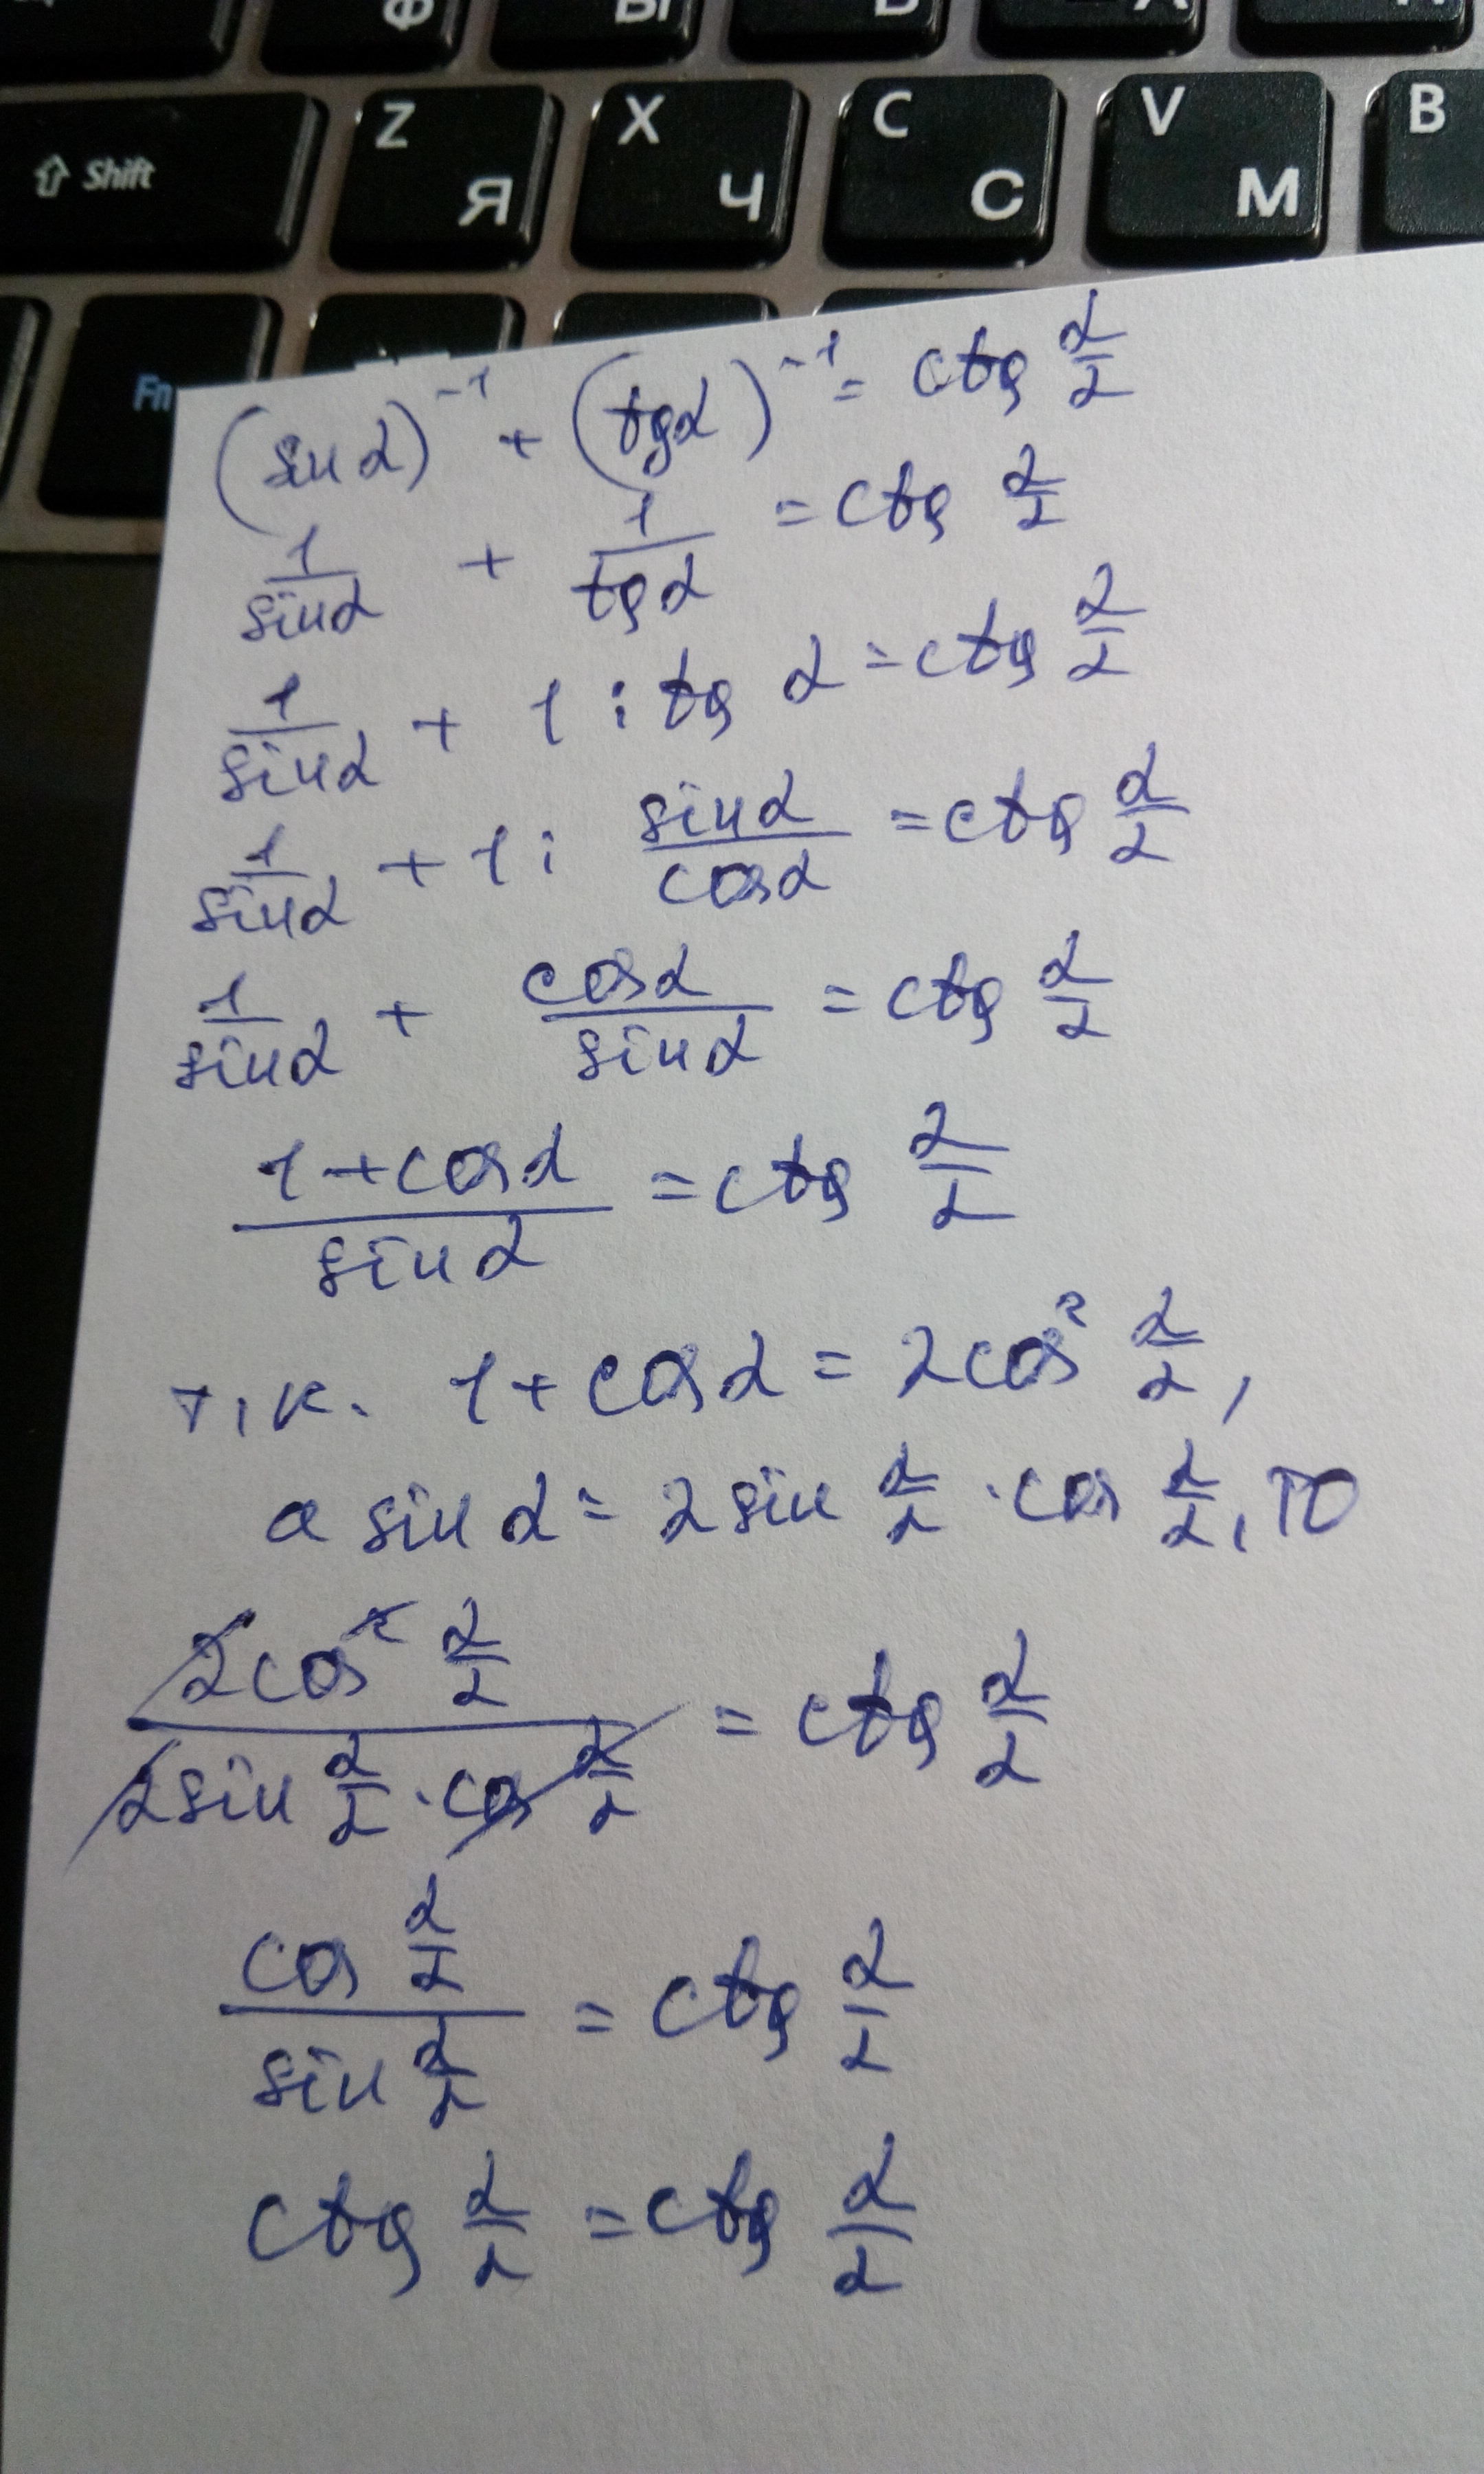 Ф Ы В А П
⇧ Shift Z Я X Ч C С V М B
Fn
(sin α)⁻¹ + (tg α)⁻¹ = ctg α/2
1/sin α + 1/tg α = ctg α/2
1/sin α + 1 : tg α = ctg α/2
1/sin α + 1 : sin α/cos α = ctg α/2
1/sin α + cos α/sin α = ctg α/2
(1 + cos α)/sin α = ctg α/2
т.к. 1 + cos α = 2cos² α/2,
а sin α = 2 sin α/2 · cos α/2, то
2cos² α/2 / (2sin α/2 · cos α/2) = ctg α/2
cos α/2 / sin α/2 = ctg α/2
ctg α/2 = ctg α/2